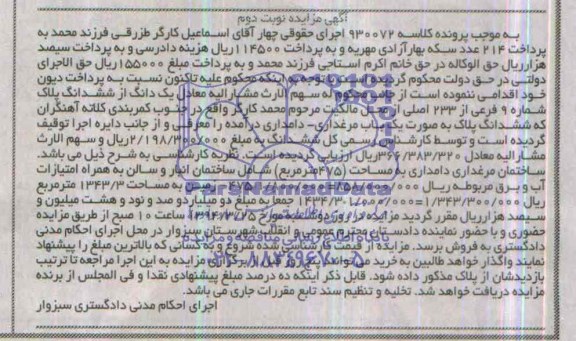 آگهی مزایده نوبت دوم
به موجب پرونده کلاسه ۹۳۰۰۷۲ اجرای حقوقی چهار آقای اسماعیل کارگر طزرقی فرزند محمد به
پرداخت ۲۱۴ عدد سکه بهارآزادی مهریه و به پرداخت ۱۱۴۵۰۰ریال هزینه دادرسی و به پرداخت سیصد
هزارریال حق الوکاله در حق خانم اکرم استاجی فرزند محمد و به پرداخت مبلغ ۱۵۵۰۰۰ریال حق الاجرای
دولتی در حق دولت محکوم گردیده است با توجه به اینکه محکوم علیه تاکنون نسبت به پرداخت دیون
خود اقدامی ننموده است از جانب محکوم له سهم الارث مشارالیه معادل یک دانگ از ششدانگ پلاک
شماره ۹ فرعی از ۲۳۳ اصلی از محل مالکیت مرحوم محمد کارگر واقع در جنوب کمربندی کلاته آهنگران
که ششدانگ پلاک به صورت یک باب مرغداری- دامداری درآمده را معرفی و از جانب دایره اجرا توقیف
گردیده است و توسط کارشناس رسمی کل ششدانگ به مبلغ ۲/۱۹۸/۳۰۰/۰۰۰ریال و سهم الارث
مشارالیه معادل ۳۶۶/۳۸۳/۳۲۰ریال ارزیابی گردیده است. نظریه کارشناسی به شرح ذیل می باشد.
ساختمان مرغداری دامداری به مساحت (۴۷۵مترمربع) شامل ساختمان انبار و سالن به همراه امتیازات
آب و برق مربوطه ریال زمین به مساحت ۱۳۴۳/۳ مترمربع
ریال ۱/۳۴۳/۳۰۰/۰۰۰= جمعا به مبلغ دو میلیارد و صد و نود و هشت میلیون و
سیصد هزارریال مقرر گردید مزایده در روز مورخ ۱۳۹۴/۳/۲۵ ساعت ۱۰ صبح از طریق مزایده
حضوری و با حضور نماینده دادستان محترم عمومی و انقلاب شهرستان سبزوار در محل اجرای احکام مدنی
دادگستری به فروش برسد. مزایده از قیمت کارشناسی شده شروع و به کسانی که بالاترین مبلغ را پیشنهاد
نمایند واگذار خواهد طالبین به خرید می توانند برگزاری مزایده به این اجرا مراجعه تا ترتیب
بازدیدشان از پلاک مذکور داده شود. قابل ذکر اینکه ده درصد مبلغ پیشنهادی نقدا و فی المجلس از برنده
مزایده دریافت خواهد شد. تخلیه و تنظیم سند تابع مقررات جاری می باشد.
اجرای احکام مدنی دادگستری سبزوار